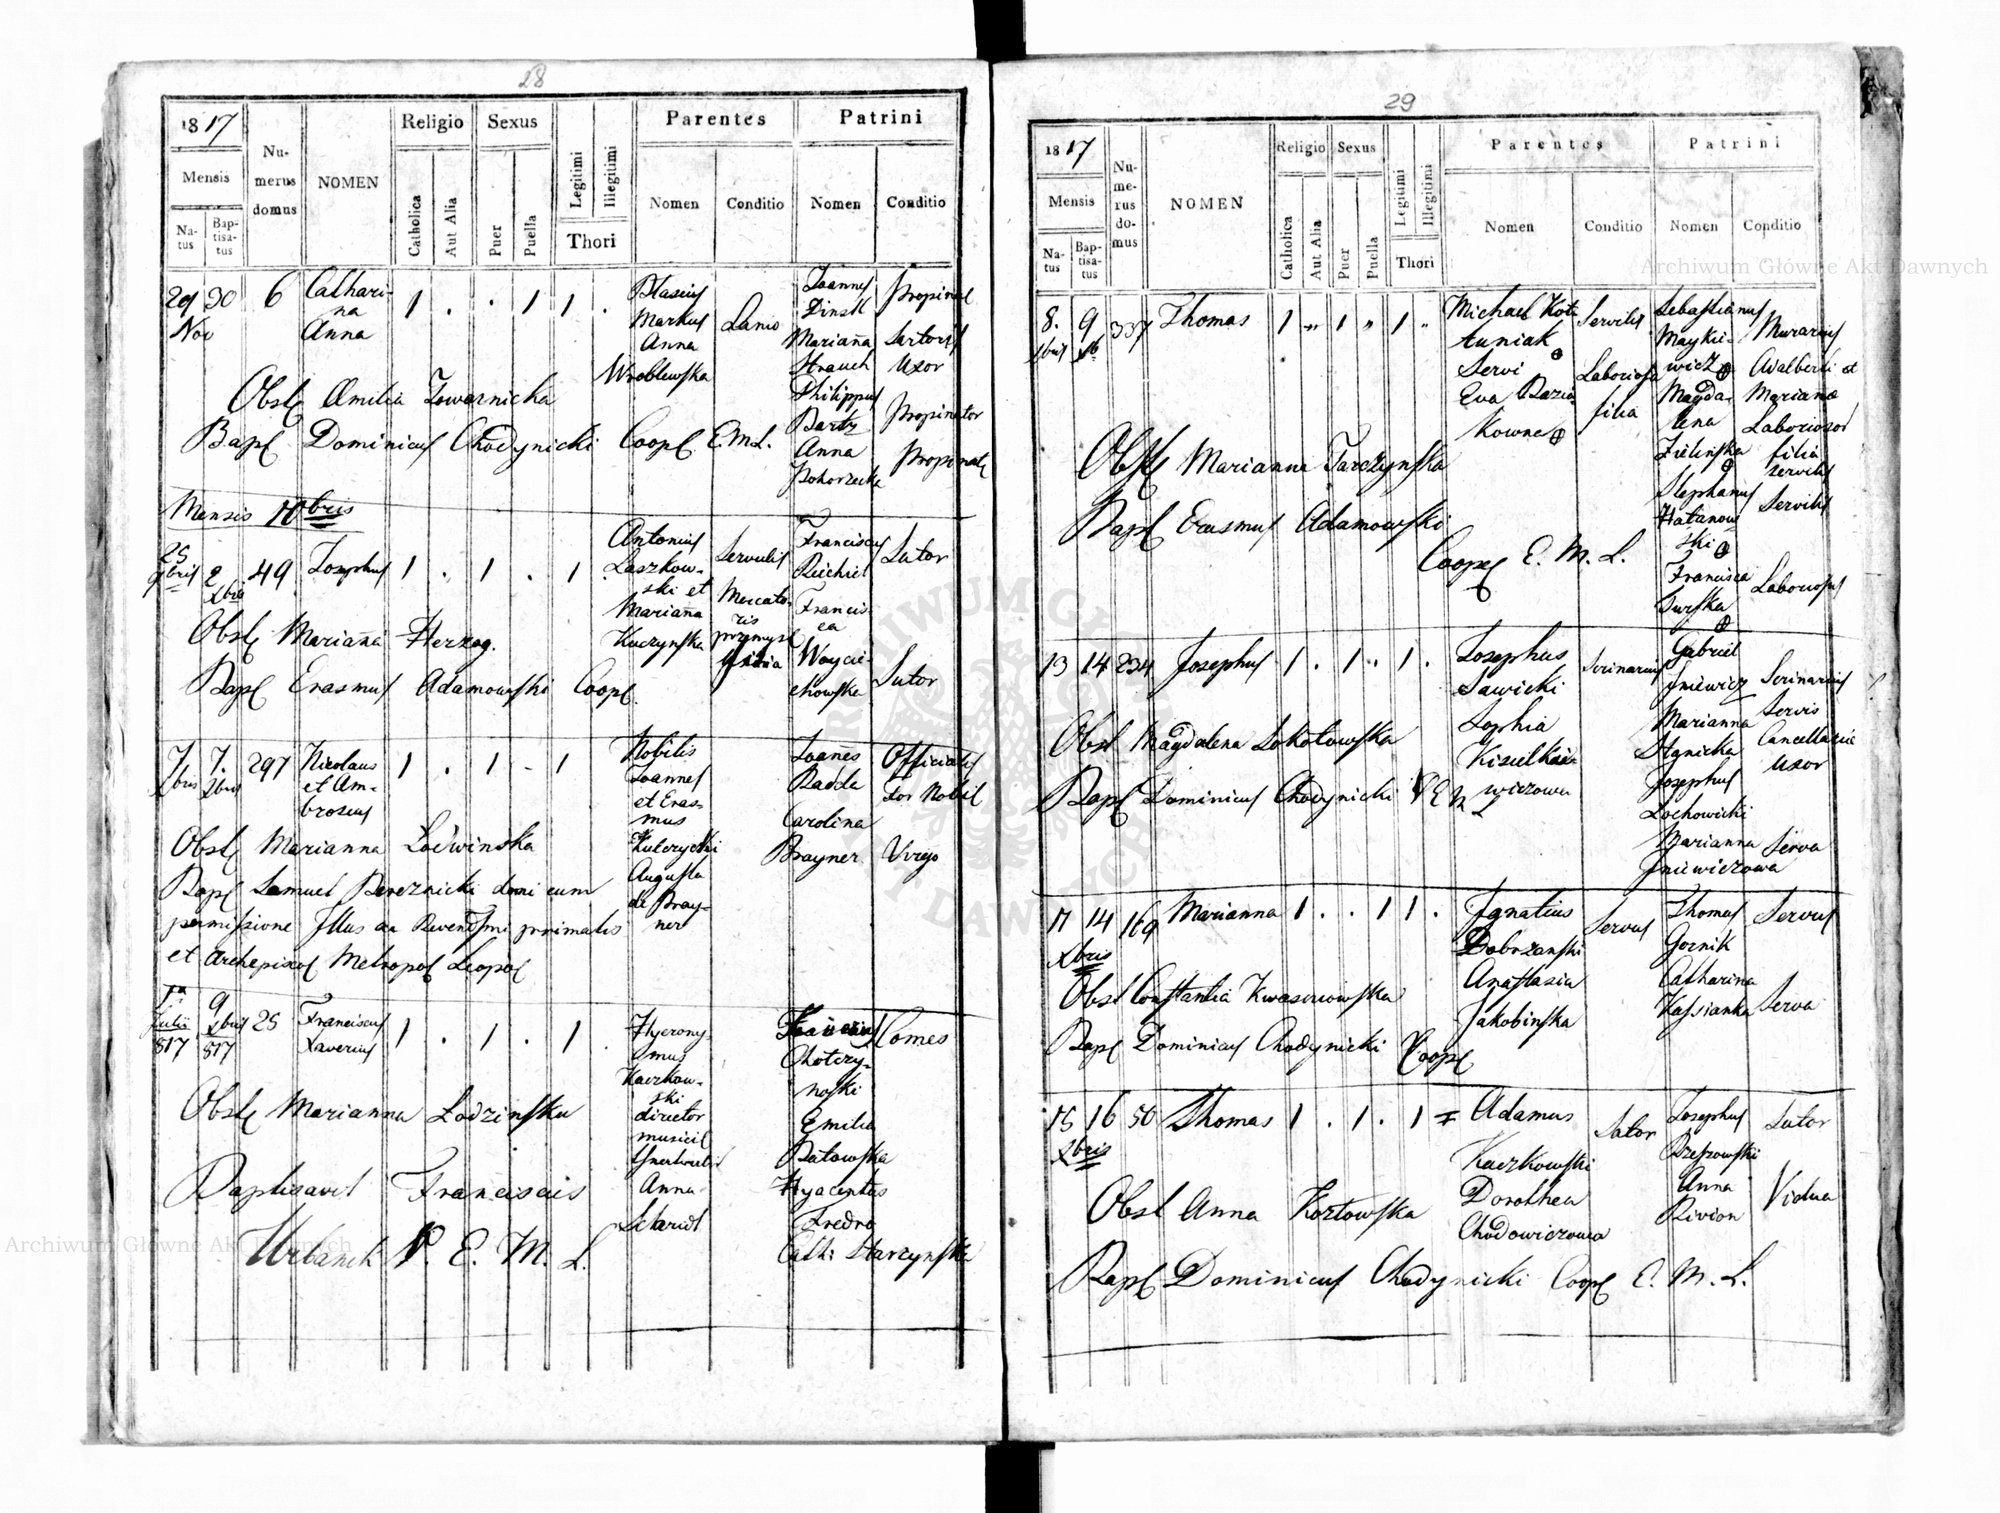 28
1817
Mensis
Na-
tus
Bap-
tisa-
tus
Nu-
merus
domus
NOMEN
Religio
Catholica
Aut Alia
Sexus
Puer
Puella
Legitimi
Illegitimi
Thori
Parentes
Nomen
Conditio
Patrini
Nomen
Conditio
29 30 6 Cathari-
Nov
na
Anna
1 . . 1 1 .
Blasius
Markus
Anna
Wroblewska
Lanio
Joannes
Dinst
Marianna
Strauch
Philippus
Bartz
Anna
Pohorzecka
Sartoris
Uxor
Propinator
Obst Æmilia Towarnicka
Bapt Dominicus Chodynicki Coop E.M.L.
Mensis 10bris
25
9bris 2
Xbris
49 Josephus 1 . 1 . 1
Antonius
Laszkow-
ski et
Marianna
Kuczynska
Servilis
Mercato-
ris
filia
Franciscus
Reichiel
Francis-
ca
Woycie-
chowska
Sutor
Sutor
Obst Marianna Herzog.
Bapt Erasmus Adamowski Coop.
7 7. 297 Nicolaus
Xbris Xbris
et Am-
brosius
1 . 1 - 1
Nobilis
Joannes
et Eras-
mus
Kulczycki
Augusta
de Bray-
ner
Joanes
Badda
Carolina
Brayner
Officialis
Virgo
Obst Marianna Lodwinska
Bapt Samuel Bereznicki domi cum
permissione Illus ac Revendssmi primatis
et Archepiscop Metropol Leopol
1a
Julii
817
9
Xbris
817
25 Franciscus
Xaverius
1 . 1 . 1
Hyerony-
mus
Kaczkow-
ski
director
musices
Anna
Comes
Emilia
Batowska
Hyacintus
Fredro
Cath: Starzynska
Obst Marianna Lodzinska
Baptisavit Franciscus
Urbanek P. E. M. L.
29
1817
Mensis
Na-
tus
Bap-
tisa-
tus
Nu-
me-
rus
do-
mus
NOMEN
Religio
Catholica
Aut Alia
Sexus
Puer
Puella
Legitimi
Illegitimi
Thori
Parentes
Nomen
Conditio
Patrini
Nomen
Conditio
8. 9 337 Thomas 1 " 1 " 1 "
Xbris Xb
Michael Kot-
tuniak
Servi
Eva Bazia-
kowna
Servilis
Laboriosa
filia
Sebastianus
Maykie-
wicz
Magda-
lena
Zielinska
Stephanus
Hatanow
ski
Francisca
Surska
Murarius
Adalberti et
Marianæ
Laboriosor
filia
Servilis
Servilis
Laboriosus
Obst Marianna Tarczynska
Bapt Erasmus Adamowski
Coop E. M. L.
13 14 234 Josephus 1 . 1 . 1 .
Josephus
Sawicki
Sophia
Kisielkie-
wiczowa
Scrinarius
Gabriel
Jniewicz
Marianna
Stanicka
Josephus
Lochowicki
Marianna
Jniewiczowa
Scrinarius
Servis
Cancellariæ
Uxor
Serva
Obst Magdalena Sokolowska
Bapt Dominicus Chodynicki
17 14 169 Marianna 1 . . 1 1 .
Xbris
Ignatius
Dobrzanski
Anastasia
Jakobinska
Servus
Thomas
Gornik
Catharina
Kassianka
Servus
Serva
Obst Constantia Kwasniowska
Bapt Dominicus Chodynicki Coop
15 16 50 Thomas 1 . 1 . 1
Xbris
Adamus
Kaczkowski
Dorothea
Chodowiczowa
Sutor
Josephus
Brzezowski
Anna
Rivion
Sutor
Vidua
Obst Anna Kozlowska
Bapt Dominicus Chodynicki Coop E. M. L.
Archiwum Główne Akt Dawnych
Archiwum Główne Akt Dawnych